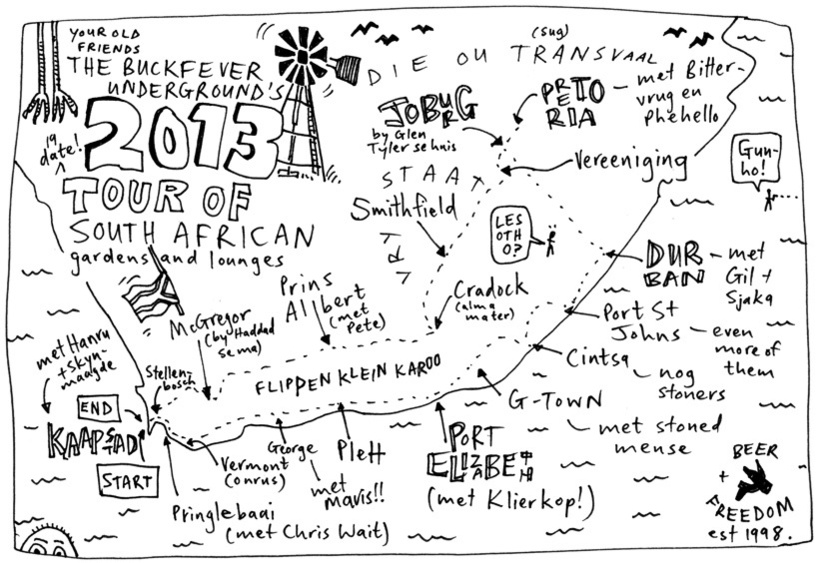 YOUR OLD
FRIENDS
THE BUCKFEVER
UNDERGROUND'S
19 date!
2013
TOUR OF
SOUTH AFRICAN
gardens and lounges
DIE OU TRANSVAAL
(sug)
JOBURG
by Glen
Tyler se huis
PRETORIA
met Bitter-
vrug en
Phehello
Vereeniging
Gun-
ho!
STAAT
VRY
Smithfield
LES
OTH
O?
DUR
BAN
met
Gil +
Sjaka
Prins
Albert
(met
Pete)
Cradock
(alma
mater)
McGregor
(by Haddad
se ma)
Port St
Johns
even
more of
them
met Hanru
+ Skyn-
maagde
Stellen-
bosch
FLIPPEN KLEIN KAROO
Cintsa
nog
stoners
G-TOWN
met stoned
mense
END
KAAPSTAD
START
Vermont
(onrus)
George
met
mavis!!
Plett
PORT
ELIZABETH
(met Klierkop!)
Pringlebaai
(met Chris Wait)
BEER
+
FREEDOM
est 1998.